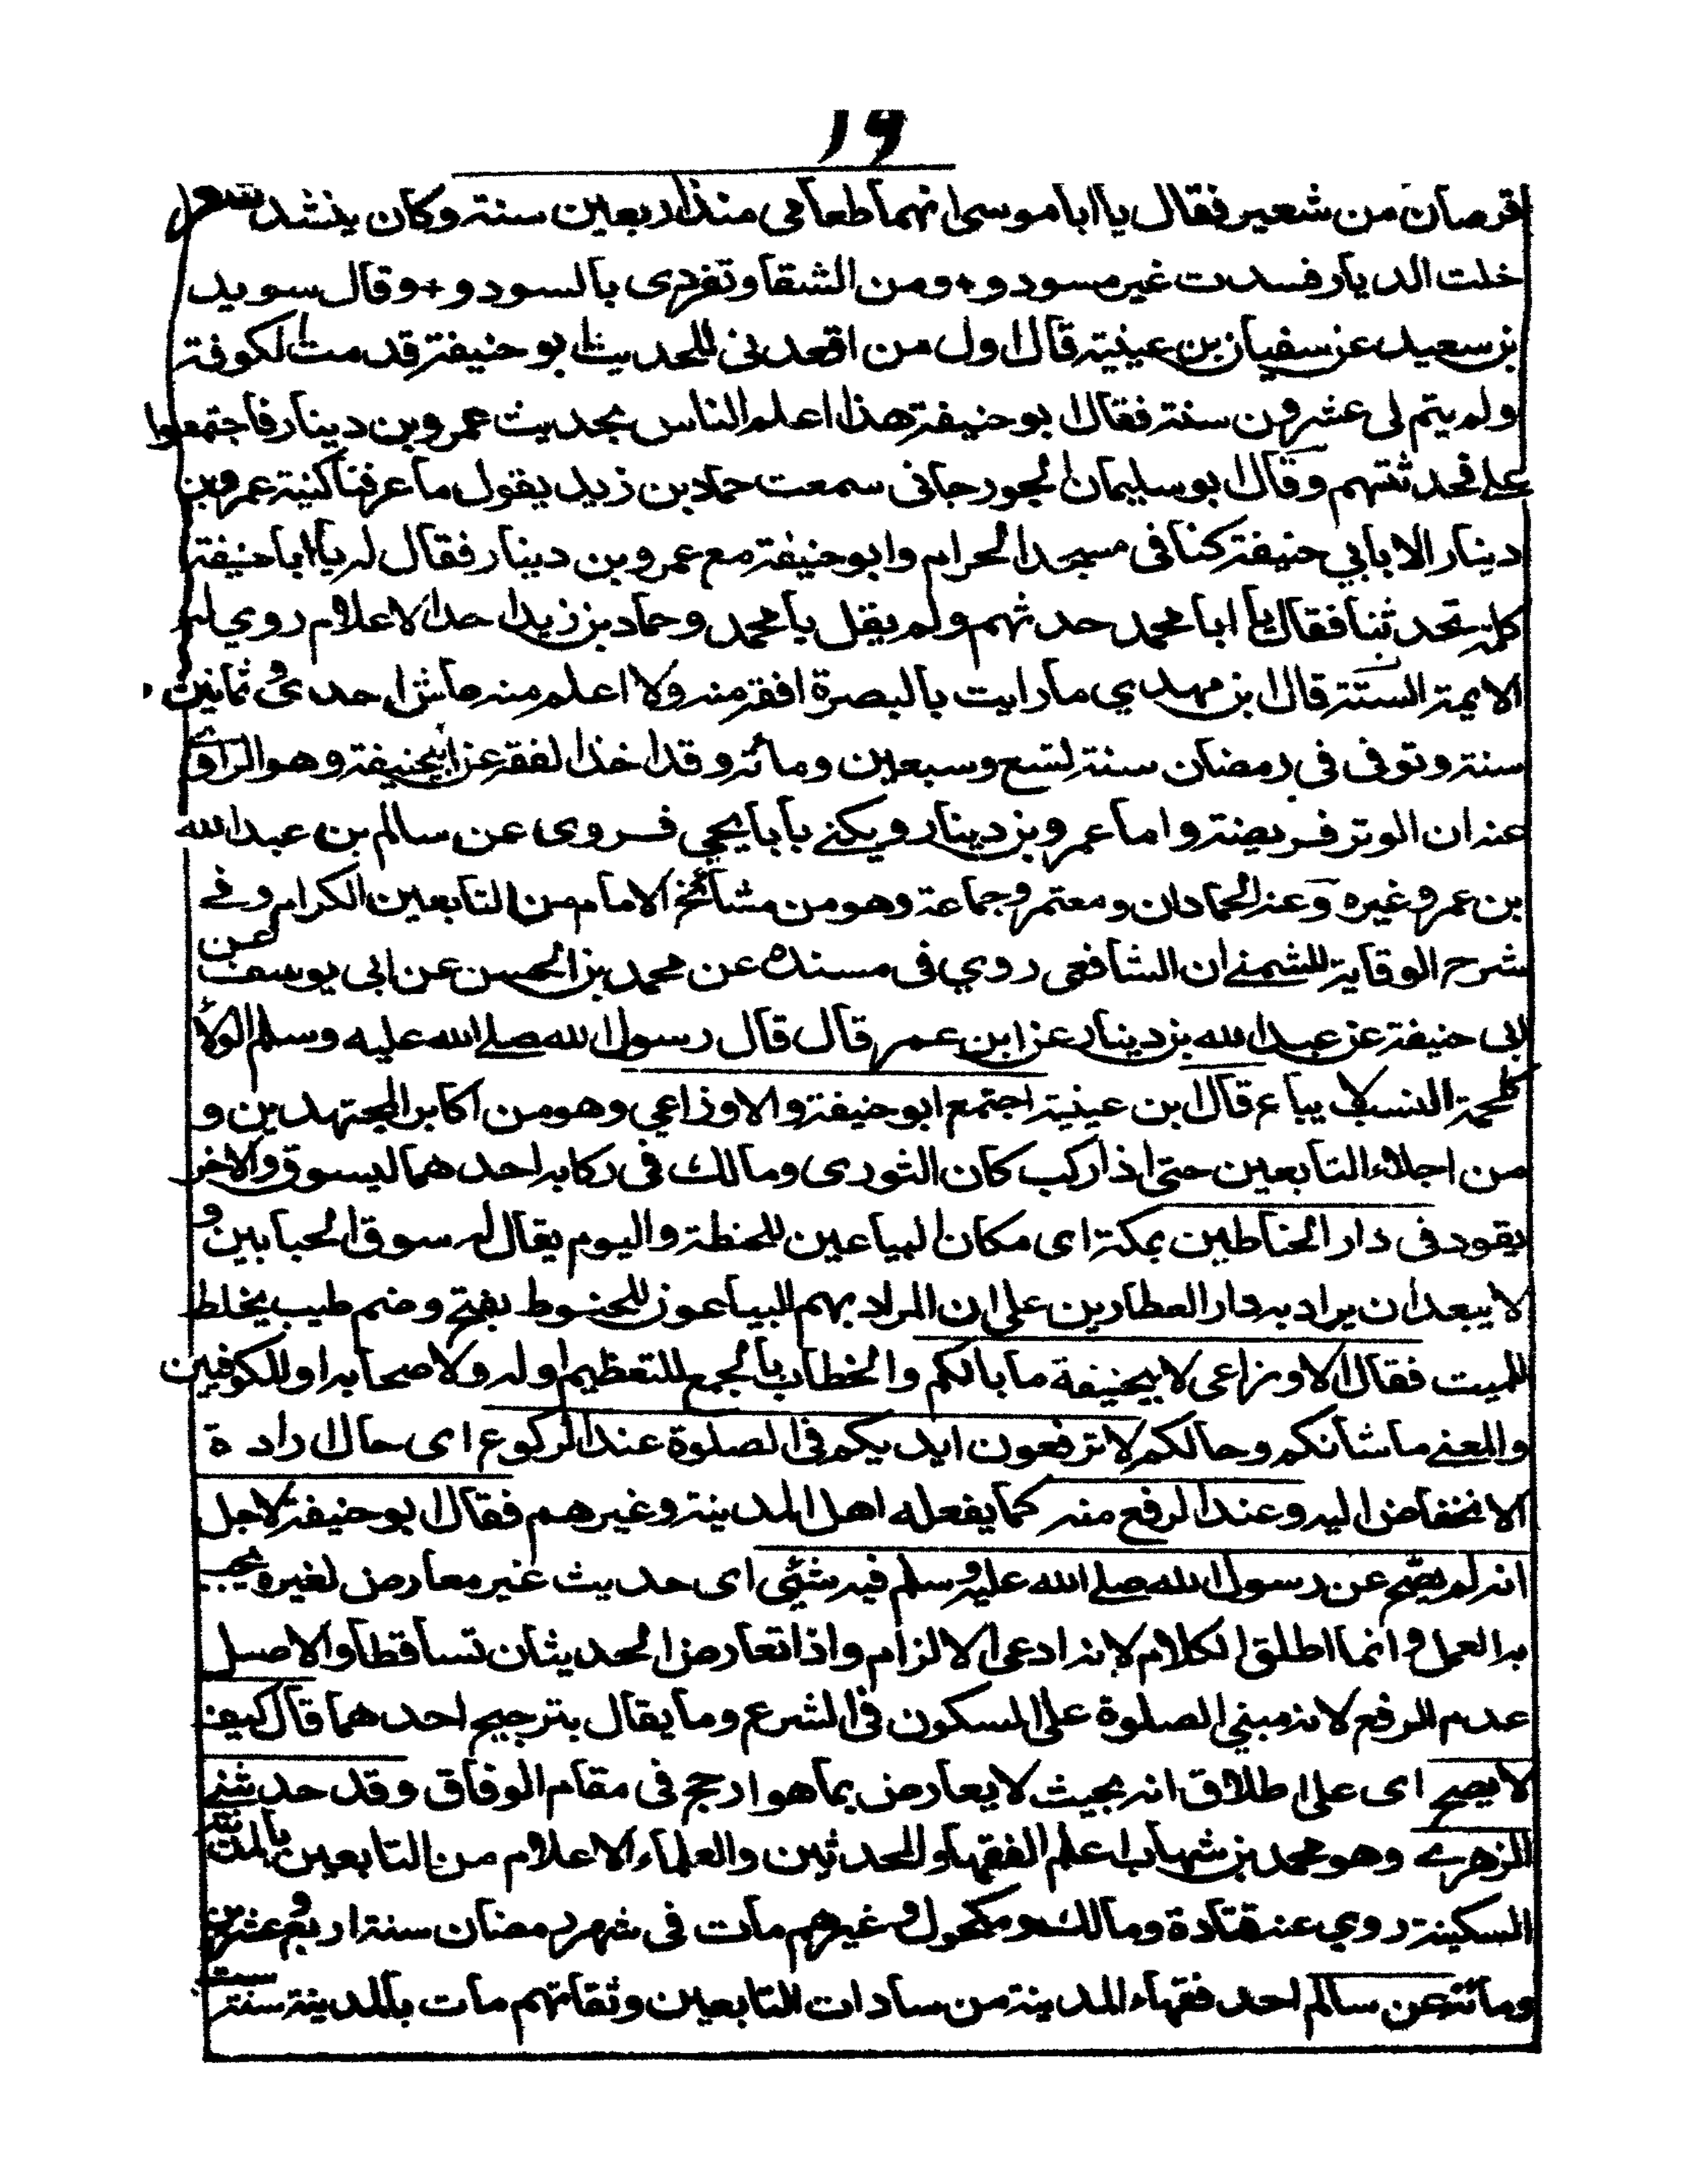 ١٦
قرصان من شعير فقال يا ابا موسى انهما طعامى منذ اربعين سنة وكان ينشد شعر
خلت الديار فسدت غير مسود و + ومن الشقاء تفردى بالسود و + وقال سويد
بن سعيد عن سفيان بن عيينة قال اول من اقعدنى للحديث ابو حنيفة قدمت الكوفة
ولم يتم لى عشرون سنة فقال ابو حنيفة هذا اعلم الناس بحديث عمرو بن دينار فاجتمعوا
على فحدثتهم وقال ابو سليمان الجورجانى سمعت حماد بن زيد يقول ما عرفنا كنية عمرو بن
دينار الا بابي حنيفة كنا فى مسجد الحرام وابو حنيفة مع عمرو بن دينار فقال له يا ابا حنيفة
كلمة تحدثنا فقال يا ابا محمد حدثهم ولم يقل يا محمد وحماد بن زيد احد الاعلام روي له
الايمة الستة قال ابن مهدي ما رايت بالبصرة افقه منه ولا اعلم منه عاش احدى وثمانين
سنة وتوفى فى رمضان سنة تسع وسبعين ومائة وقد اخذ الفقه عن ابيحنيفة وهو الراوى
عنه ان الوتر فريضة واما عمرو بن دينار ويكنى بابا يحيى فروى عن سالم بن عبد الله
بن عمر وغيره وعنه الحمادان ومعتمر وجماعة وهو من مشائخ الامام من التابعين الكرام وفى
شرح الوقاية للشمنى ان الشافعى روي فى مسنده عن محمد بن الحسن عن ابى يوسف عن
ابى حنيفة عن عبد الله بن دينار عن ابن عمر قال قال رسول الله صلى الله عليه وسلم الولاء
كلحمة النسب لا يباع قال ابن عيينة اجتمع ابو حنيفة والاوزاعي وهو من اكابر المجتهدين و
من اجلاء التابعين حتى اذا ركب كان الثورى ومالك فى ركابه احدهما ليسوق والاخر
يقود فى دار الحناطين بمكة اى مكان لبياعين للحنطة واليوم يقال له سوق الحبابين و
لا يبعد ان يراد به دار العطارين على ان المراد بهم البياعون للحنوط بفتح وضم طيب يخلط
للميت فقال الاوزاعى لابيحنيفة ما بالكم والخطاب بالجمع للتعظيم اوله ولاصحابه او للكوفيين
والمعنى ما شأنكم وحالكم لا ترفعون ايديكم فى الصلوة عند الركوع اى حال ارادة
الانخفاض اليه وعند الرفع منه كما يفعله اهل المدينة وغيرهم فقال ابو حنيفة لاجل
انه لم يصح عن رسول الله صلى الله عليه وسلم فيه شئى اى حديث غير معارض لغيره يجب
به العمل وانما اطلق الكلام لانه ادعى الالزام واذا تعارض الحديثان تساقطا والاصل
عدم الرفع لانه مبني الصلوة على السكون فى الشرع وما يقال بترجيح احدهما قال كيف
لا يصح اى على اطلاق انه بحيث لا يعارض بما هو ارجح فى مقام الوفاق وقد حدثنى
الزهرى وهو محمد بن شهاب اعلم الفقهاء والمحدثين والعلماء الاعلام من التابعين بالمدينة
السكينة روي عنه قتادة ومالك ومكحول وغيرهم مات فى شهر رمضان سنة اربع وعشرين
ومائة عن سالم احد فقهاء المدينة من سادات التابعين وثقاتهم مات بالمدينة سنة ست